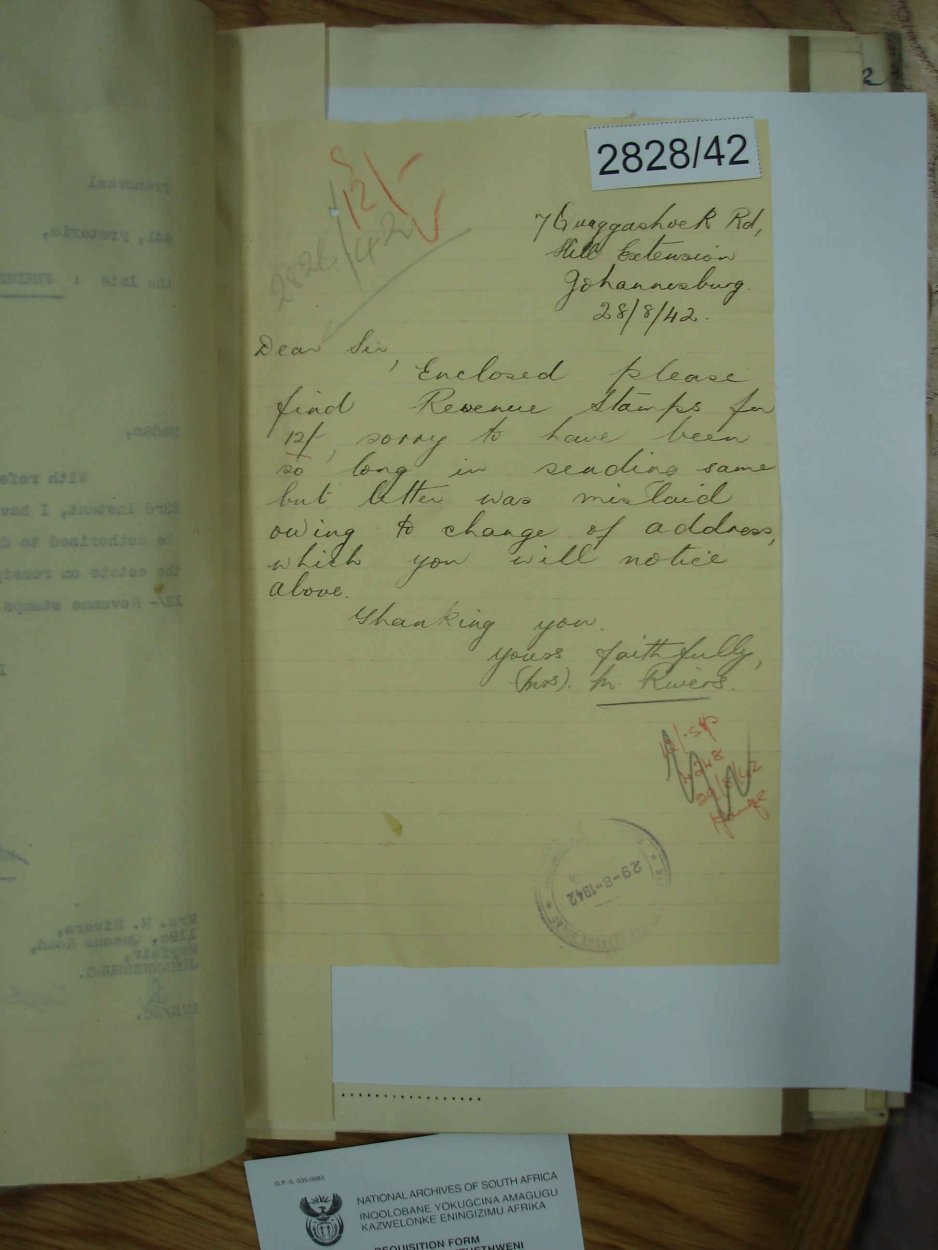 2
2828/42
12/-
2828/42
7 Quaggashoek Rd,
Hill Extension
Johannesburg.
28/8/42.
Dear Sir,
Enclosed please
find Revenue Stamps for
12/-, sorry to have been
so long in sending same
but letter was mislaid
owing to change of address,
which you will notice
above.
Thanking you.
Yours faithfully,
(Mrs). M. Rivers.
29/8/42
29-8-1942
Transvaal
Pretoria,
the late : FREDE
Madam,
With refe
23rd instant, I hav
be authorised to
the estate on receip
12/- Revenue stamps
Mrs. M. Rivers,
119a, Queens Road,
Mayfair,
JOHANNESBURG.
G.P.-S. 035-0083
NATIONAL ARCHIVES OF SOUTH AFRICA
INQOLOBANE YOKUGCINA AMAGUGU
KAZWELONKE ENINGIZIMU AFRIKA
REQUISITION FORM